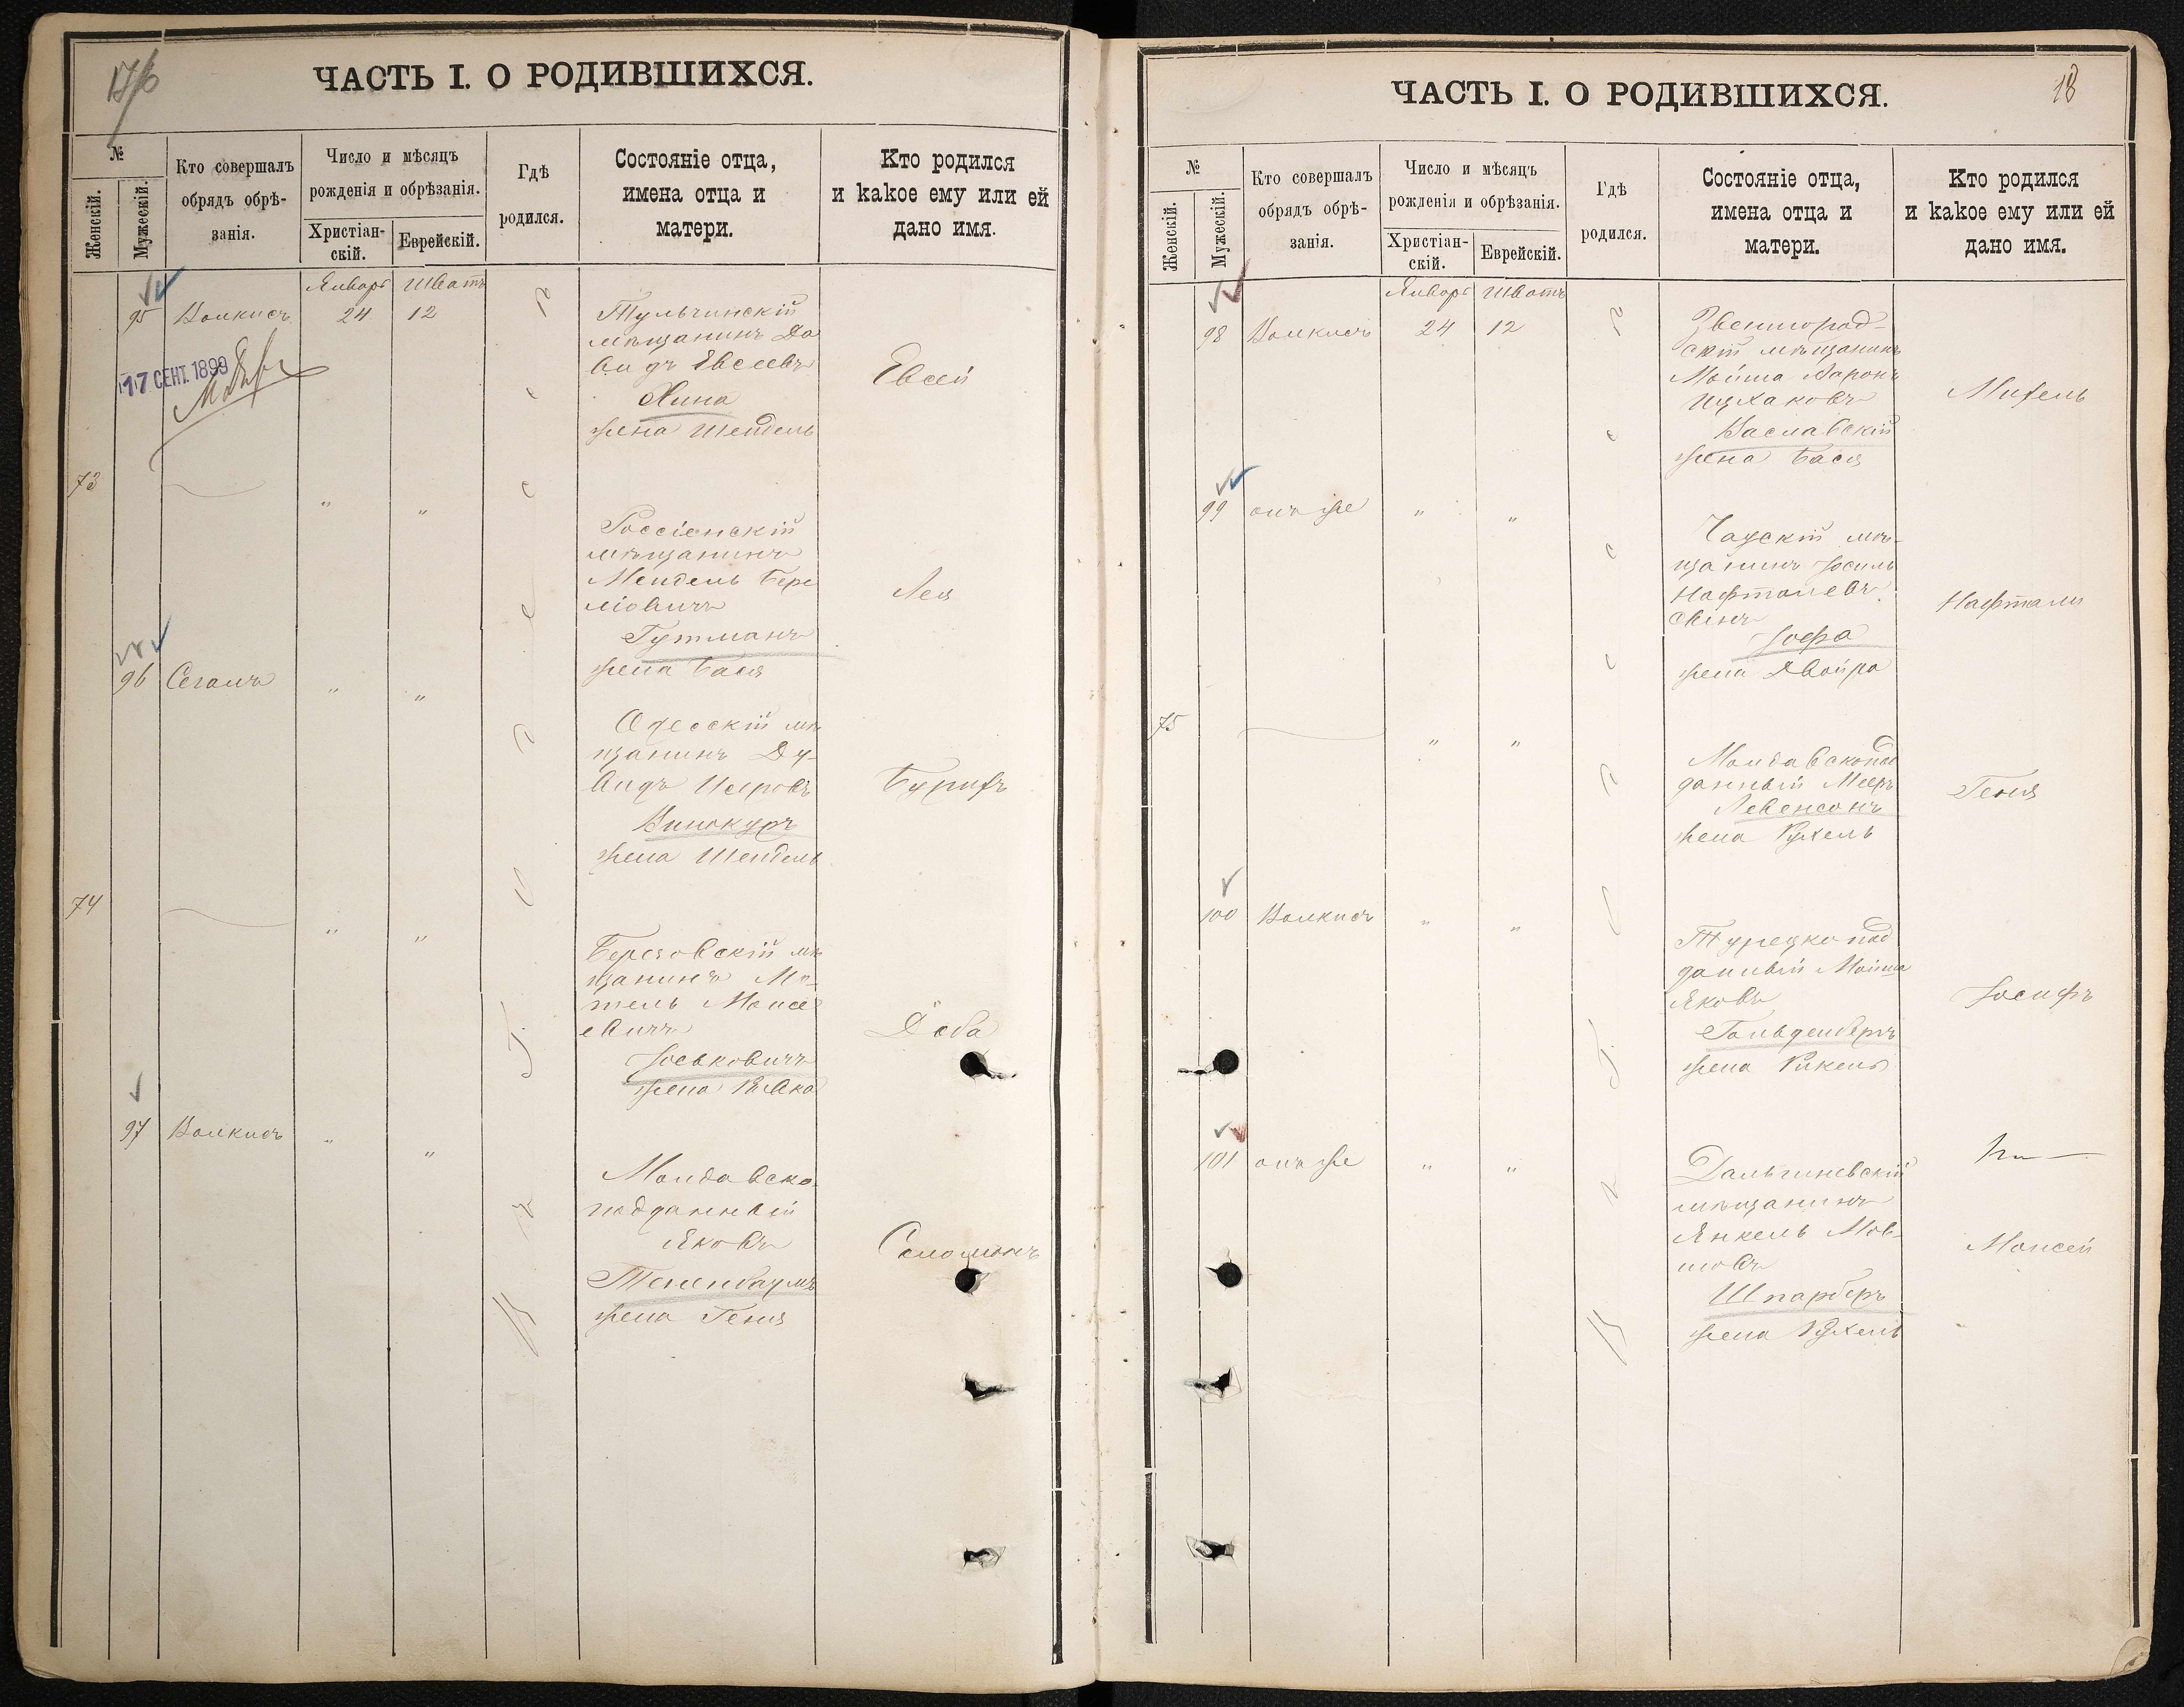 ЧАСТЬ I. О РОДИВШИХСЯ.
№
Женскій.
Мужескій.
Кто совершалъ
обрядъ обрѣ-
занія.
Число и мѣсяцъ
рожденія и обрѣзанія.
Христіан-
скій.
Еврейскій.
Гдѣ
родился.
Состояніе отца,
имена отца и
матери.
Кто родился
и какое ему или ей
дано имя.
Январь Шватъ
95 Волкисъ 24 12
17 СЕНТ. 1899
Тульчинскій
мѣщанинъ Да
видъ Евсеевъ
Хина
жена Шендель
Евсей
73 " "
Россіенскій
мѣщанинъ
Мендель Бере
Гутманъ
жена Бася
Лея
96 Сегалъ " "
Одесскій мѣ
щанинъ Ду-
видъ Исеровъ
Винокуръ
жена Шендель
74 " "
Березовскій мѣ
щанинъ Мо-
тель Моисе
евичъ
Іоськовичъ
жена Ривка
Доба
97 Волкисъ " "
Молдавско
подданный
Яковъ
Тененбаумъ
жена Геня
Соломонъ
ЧАСТЬ I. О РОДИВШИХСЯ.
18
№
Женскій.
Мужескій.
Кто совершалъ
обрядъ обрѣ-
занія.
Число и мѣсяцъ
рожденія и обрѣзанія.
Христіан-
скій.
Еврейскій.
Гдѣ
родился.
Состояніе отца,
имена отца и
матери.
Кто родился
и какое ему или ей
дано имя.
Январь Шватъ
98 Волкисъ 24 12
Звенигород-
скій мѣщанинъ
Мойша Аронъ
Ицхаковъ
Заславскій
жена Бася
Михель
99 онъ же " "
Чаусскій мѣ-
щанинъ Іосиль
Нафтолевъ
Іофа
жена Двойра
Нафтали
75 " "
Молдавскопод
данный Мееръ
Левенсонъ
жена Рухель
Геня
100 Волкисъ " "
Турецко под
данный Мойша
Яковъ
Гольденбергъ
жена Рикель
Іосифъ
101 онъ же " "
Дальникскій
мѣщанинъ
Янкель Мов-
шовъ
Шпарберъ
жена Рухель
Моисей